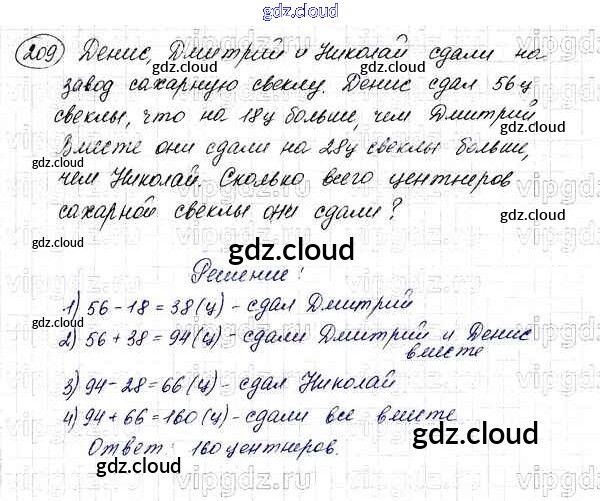 gdz.cloud
209 Денис, Дмитрий и Николай сдали на
завод сахарную свеклу. Денис сдал 56ц
свеклы, что на 18ц больше, чем Дмитрий
Вместе они сдали на 28ц свеклы больше,
чем Николай. Сколько всего центнеров
сахарной свеклы они сдали?
gdz.cloud
Решение:
1) 56 - 18 = 38 (ц) - сдал Дмитрий
2) 56 + 38 = 94 (ц) - сдали Дмитрий и Денис
вместе
3) 94 - 28 = 66 (ц) - сдал Николай
4) 94 + 66 = 160 (ц) - сдали все вместе
Ответ: 160 центнеров.
gdz.cloud